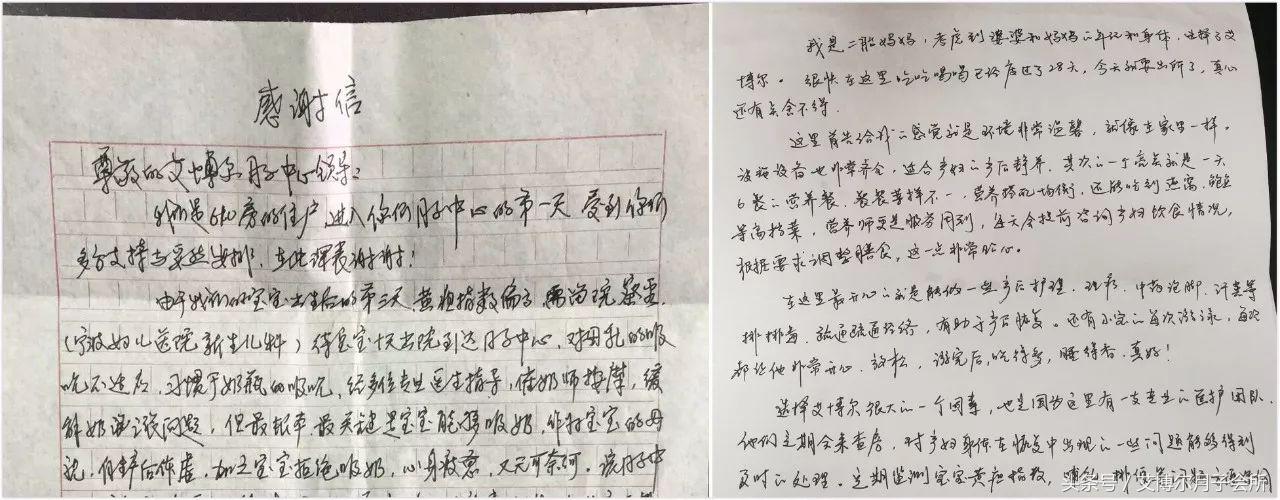 感谢信
尊敬的艾博尔月子中心领导：
我们是610房的住户 进入你们月子中心的第一天 受到你们
多方支持与妥善安排，在此深表谢谢！
由于我们的宝宝出生后的第三天，黄疸指数偏高 需留院
（宁波妇儿医院新生儿科）待宝宝十天出院到达月子中心，对母乳的吸
吮不适应，习惯于奶瓶的吸吮，经多位专业医生指导，催奶师按摩，缓
解奶 涨问题，但最根本最关键是宝宝能够吸奶，作为宝宝的母
亲，自铲后体虚，加之宝宝拒绝吸奶，心身疲惫，又无可奈何，该月子中
我是二胎妈妈，考虑到婆婆和妈妈的年纪和身体，选择了艾
博尔。很快在这里吃吃喝喝已经度过了28天，今天就要出所了，真心
还有点舍不得。
这里首先给我的感觉就是环境非常温馨，就像在家里一样。
设施设备也非常齐全，适合产妇的产后静养。其次的一个亮点就是一天
6餐的营养餐，餐餐菜样不一，营养搭配均衡，还能吃到燕窝、鲍鱼
等高档菜，营养师更是服务周到，每天会提前咨询产妇饮食情况，
根据要求调整膳食，这一点非常贴心。
在这里最开心的就是能做一些产后护理，理疗，中药泡脚、汗蒸等
排排毒，疏通疏通经络，有助于产后恢复。还有小宝的每次游泳，每次
都让他非常开心、放松，游完后，吃得香，睡得香，真好！
选择艾博尔很大的一个因素，也是因为这里有一支专业的医护团队。
他们定期会来查房，对产妇身体在恢复中出现的一些问题能够得到
及时的处理。定期监测宝宝黄疸指数，
头条号／艾博尔月子会所